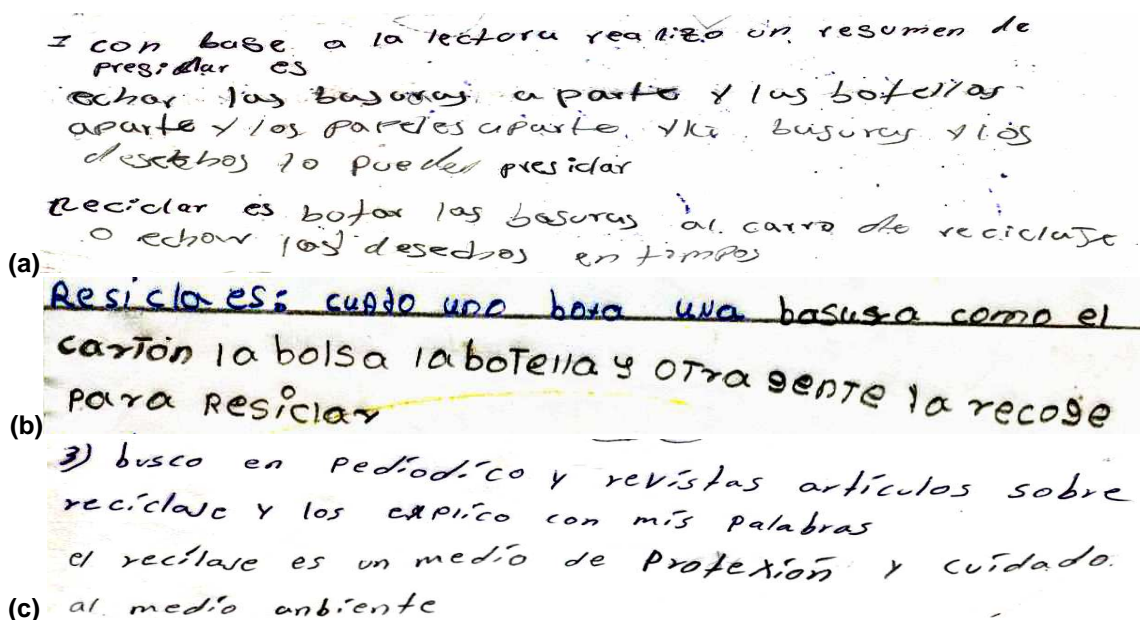 I con base a la lectora realizo un resumen de
presidlar es
echar las basuras a parte y las botellas
aparte y los papeles aparte y basuras y los
desechos lo puedes presiclar
Reciclar es botar las basuras al carro de reciclaje
o echar los desechos en timpos
(a)
Resicla es: cuado uno bota una basura como el
cartón la bolsa la botella y otra gente la recoge
para Resiclar
(b)
3) busco en pediodíco y revístas artículos sobre
recíclaje y los explíco con mís palabras
el recílaje es un medío de Protexíón y cuídado
(c) al medío anbíente